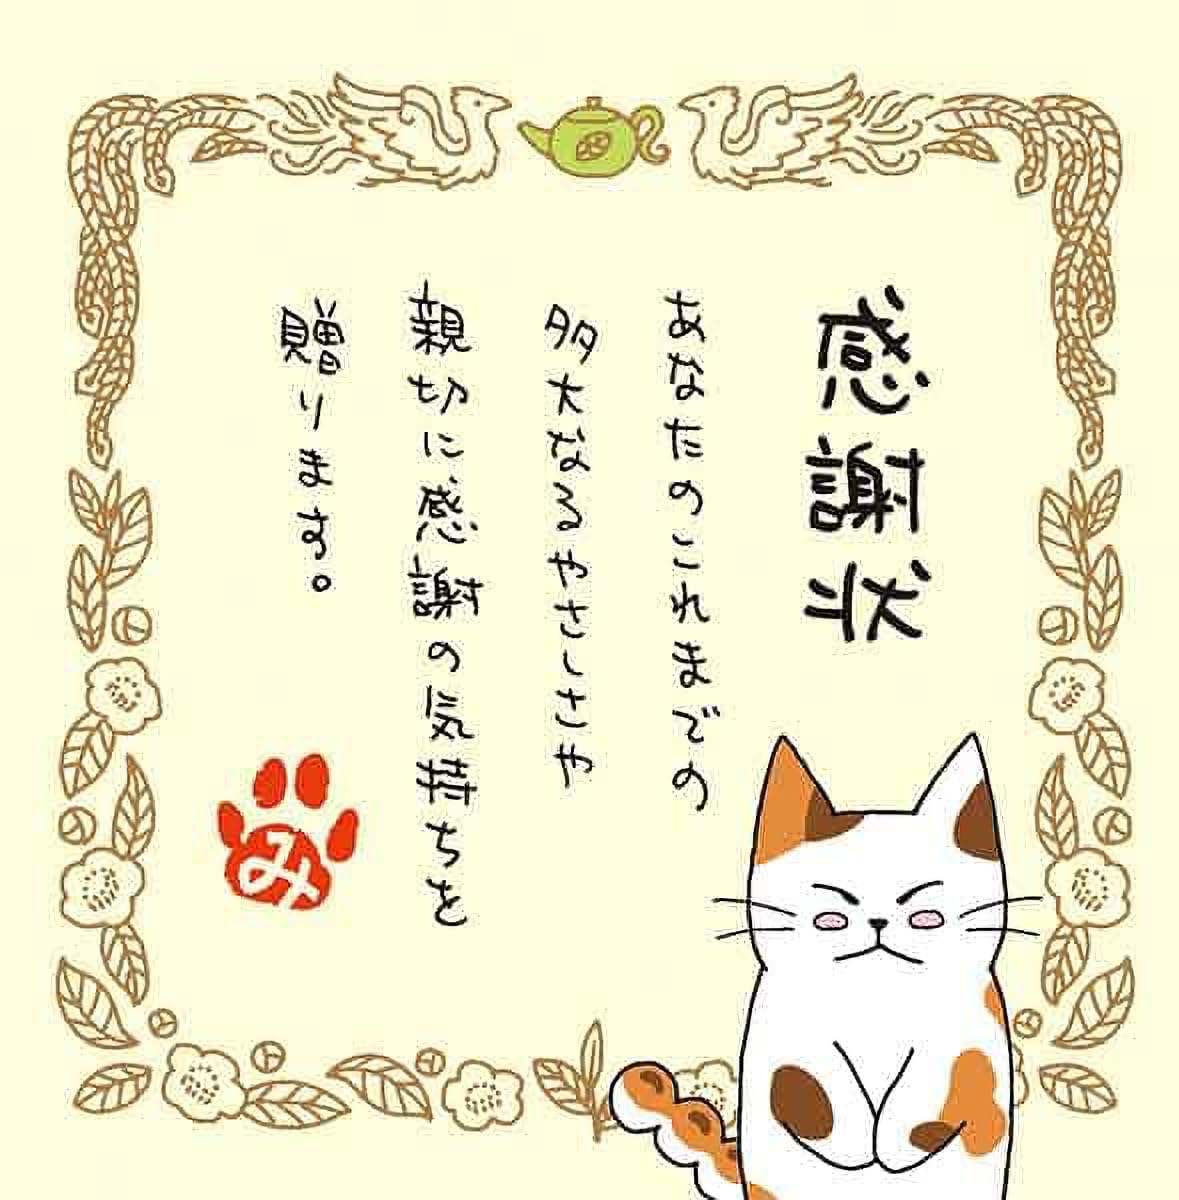 感謝状
あなたのこれまでの
多大なるやさしさや
親切に感謝の気持ちを
贈ります。
み